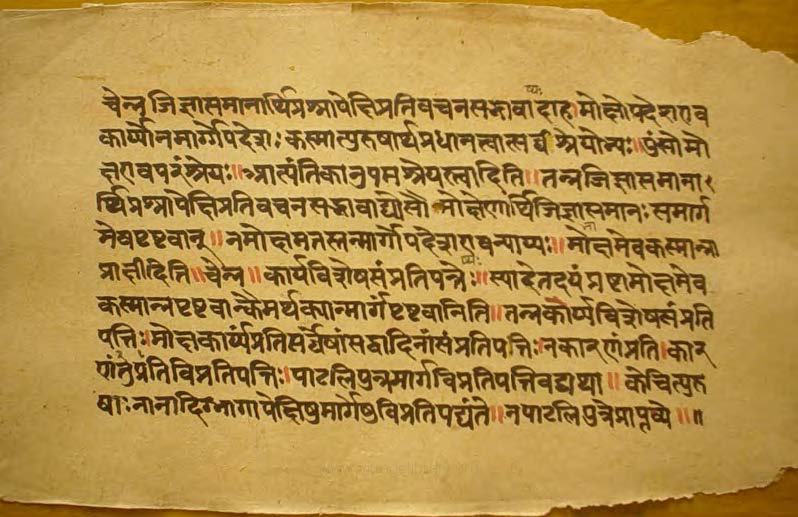 चेन्न जिज्ञासमानार्थिप्रश्नापेक्षिप्रतिवचनसद्भावादाह। मोक्षोपदेशएव
कार्य्योनमार्गोपदेशः कस्मात्पुरुषार्थप्रधानत्वात्सर्व्वश्रेयोभ्यः॥ पुंसोमो
क्षएवपरंश्रेयः॥ आत्यंतिकानुपमश्रेयस्त्वादिति॥ तन्नजिज्ञासमाना
र्थिप्रश्नापेक्षिप्रतिवचनसद्भावाद्योसौ मोक्षेणार्थिजिज्ञासमानः समार्ग
मेवपृष्टवान्॥ नमोक्षमतस्तन्मार्गोपदेशएवन्याय्यः॥ मोक्षमेवकस्मान्ना
प्राक्षीदिति॥ चेन्न॥ कार्यविशेषसंप्रतिपत्तेः॥ स्यादेतदयंप्रष्टामोक्षमेव
कस्मान्नपृष्टवान्कैमर्थक्यान्मार्गंपृष्टवानिति॥ तन्नकार्य्यविशेषसंप्रति
पत्तेः॥ मोक्षकार्य्यंप्रतिसर्व्वेषांसद्वादिनांसंप्रतिपत्तिः नकारणंप्रति। कार
णंतुप्रतिविप्रतिपत्तिः। पाटलिपुत्रमार्गविप्रतिपत्तिवद्यथा॥ केचित्पुरु
षाः नानादिग्भागापेक्षिषुमार्गेषुविप्रतिपद्यंते॥ नपाटलिपुत्रेप्राप्तव्ये॥॥